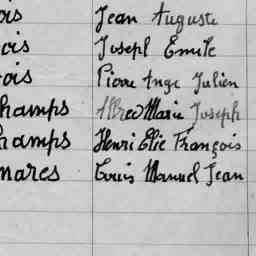 ois Jean Auguste
ois Joseph Emile
ois Pierre Ange Julien
hamps Alfred Marie Joseph
hamps Henri Elie François
mares Louis Manuel Jean